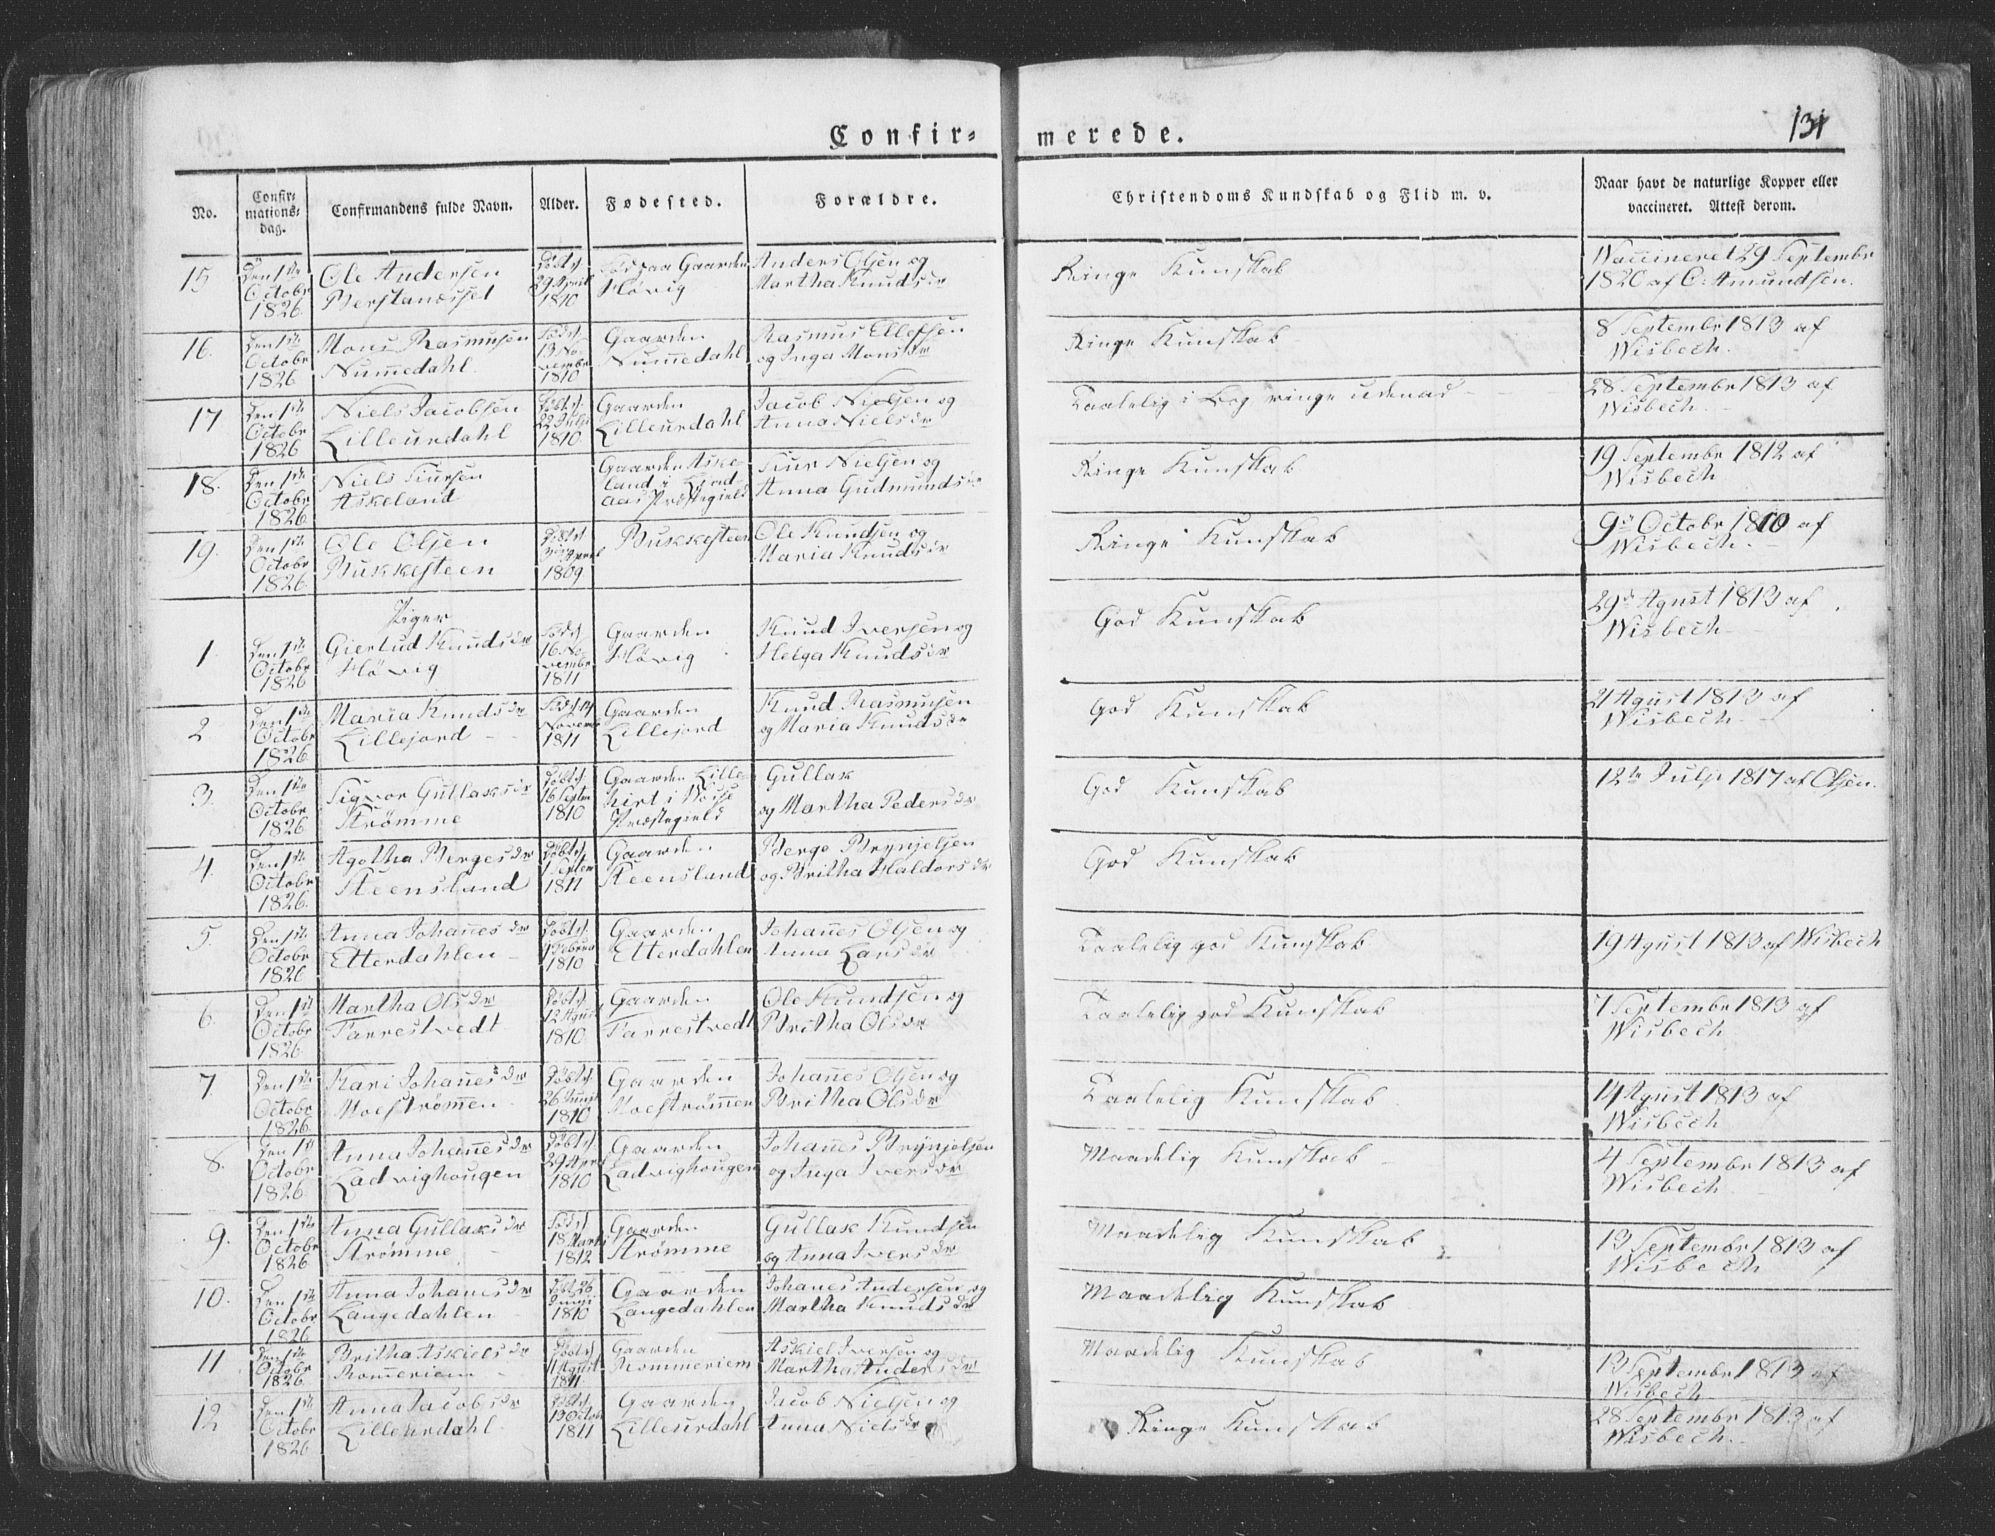 Confir= merede.
131
No.
Confir=
mations=
dag.
Confirmandens fulde Navn.
Alder.
Fødested.
Forældre.
Christendoms Kundskab og Flid m. v.
Naar havt de naturlige Kopper eller
vaccineret. Attest derom.
15 Den 1ste October 1826 Ole Andersen Døbt d. 29 April 1810 Gaarden Høvig Anders Olsen og Martha Knudsdr Ringe Kunskab Waccineret 29 Septembr 1820 af C: Amundsen.
16. Den 1ste Octobr 1826 Mons Rasmusen Nummedahl. Født 13 November 1810 Gaarden Nummedahl Rasmus Ellefsen og Inga Monsdr Ringe Kunskab 8 Septembr 1813 af Wisbech.
17 Den 1ste Octobr 1826 Niels Jacobsen Lilleurdahl Døbt d. 22 Julji 1810 Gaarden Lilleurdahl Jacob Nielsen og Anna Nielsdr Taalelig i Bog ringe udenad 28 Septembr 1813 af Wisbech.
18. Den 1ste Octobr 1826 Niels Siursen Askeland Gaarden Askeland i Præstegield Siur Nielsen og Anna Gudmundsdr Ringe Kunskab 19 Septembr 1812 af Wisbech
19. Den 1ste Octobr 1826 Ole Olsen Bukkesteen Døbt d. 1809 Bukkesteen Ole Knudsen og Maria Knudsdr Ringe Kunskab 9de Octobr 1810 af Wisbech.
Piger
1. Den 1ste Octobr 1826 Giertud Knudsdr Høvig Født 16 November 1811 Gaarden Høvig Knud Iversen og Helga Knudsdr God Kunskab 29de Agust 1813 af Wisbech
2 Den 1ste Octobr 1826 Maria Knudsdr Lillejord Født 1811 Gaarden Lillejord Knud Rasmusen og Maria Knudsdr God Kunskab 21 Agust 1813 af Wisbech
3. Den 1ste Octobr 1826 Sigvor Gullaksdr Strømme Døbt d. 16 Septem 1810 Gaarden Præstegield Gullak og Martha Pedersdr God Kunskab 12te Julji 1817 af Olsen.
4. Den 1ste Octobr 1826. Agotha Bergesdr Steensland Døbt d. 1811 Gaarden Steensland Berge Brynjelsen og Britha Haldorsdr God Kunskab
5. Den 1ste Octobr 1826 Anna Johannesdr Etterdahlen Døbt d. 1810 Gaarden Etterdahlen Johannes Olsen og Anna Larsdr Taalelig god Kunskab 19 Agust 1813 af Wisbech
6. Den 1ste Octobr 1826 Martha Olsdr Farrestvedt Døbt d. 12 Agust 1810 Gaarden Farrestvedt Ole Knudsen og Britha Olsdr Taalelig god Kunskab 7 Septembr 1813 af Wisbech.
7. Den 1ste Octobr 1826 Kari Johannesdr Moestrømmen Døbt d. 26 1810 Gaarden Moestrømmen Johannes Olsen og Britha Olsdr Taalelig Kunskab 14 Agust 1813 af Wisbech
8. Den 1ste Octobr 1826 Anna Johannesdr Ladvighougen Døbt d. 29 April 1810 Gaarden Ladvighougen Johannes Brynjelsen og Inga Iversdr Maadelig Kunskab 4 Septembr 1813 af Wisbech
9. Den 1ste Octobr 1826 Anna Gullaksdr Strømme Født d. 18 Marts 1812 Gaarden Strømme Gullak Knudsen og Anna Iversdr Maadelig Kunskab 13 Septembr 1813 af Wisbech
10. Den 1ste Octobr 1826 Anna Johanesdr Langedahlen 26 Junji 1810 Gaarden Langedahlen Johanes Andersen og Martha Knudsdr Maadelig Kunskab
11 Den 1ste Octobr 1826 Britha Askielsdr Rommeriem Døbt d. 11 Agust 1811 Gaarden Rommeriem Askiel Iversen og Martha Andersdr Maadelig Kunskab 13 Septembr 1813 af Wisbech
12 Den 1ste Octobr 1826 Anna Jacobsdr Lilleurdahl. Døbt d. 13 Octobr 1811 Gaarden Lilleurdahl Jacob Nielsen og Anna Nielsdr Ringe Kunskab 28 Septembr 1813 af Wisbech.